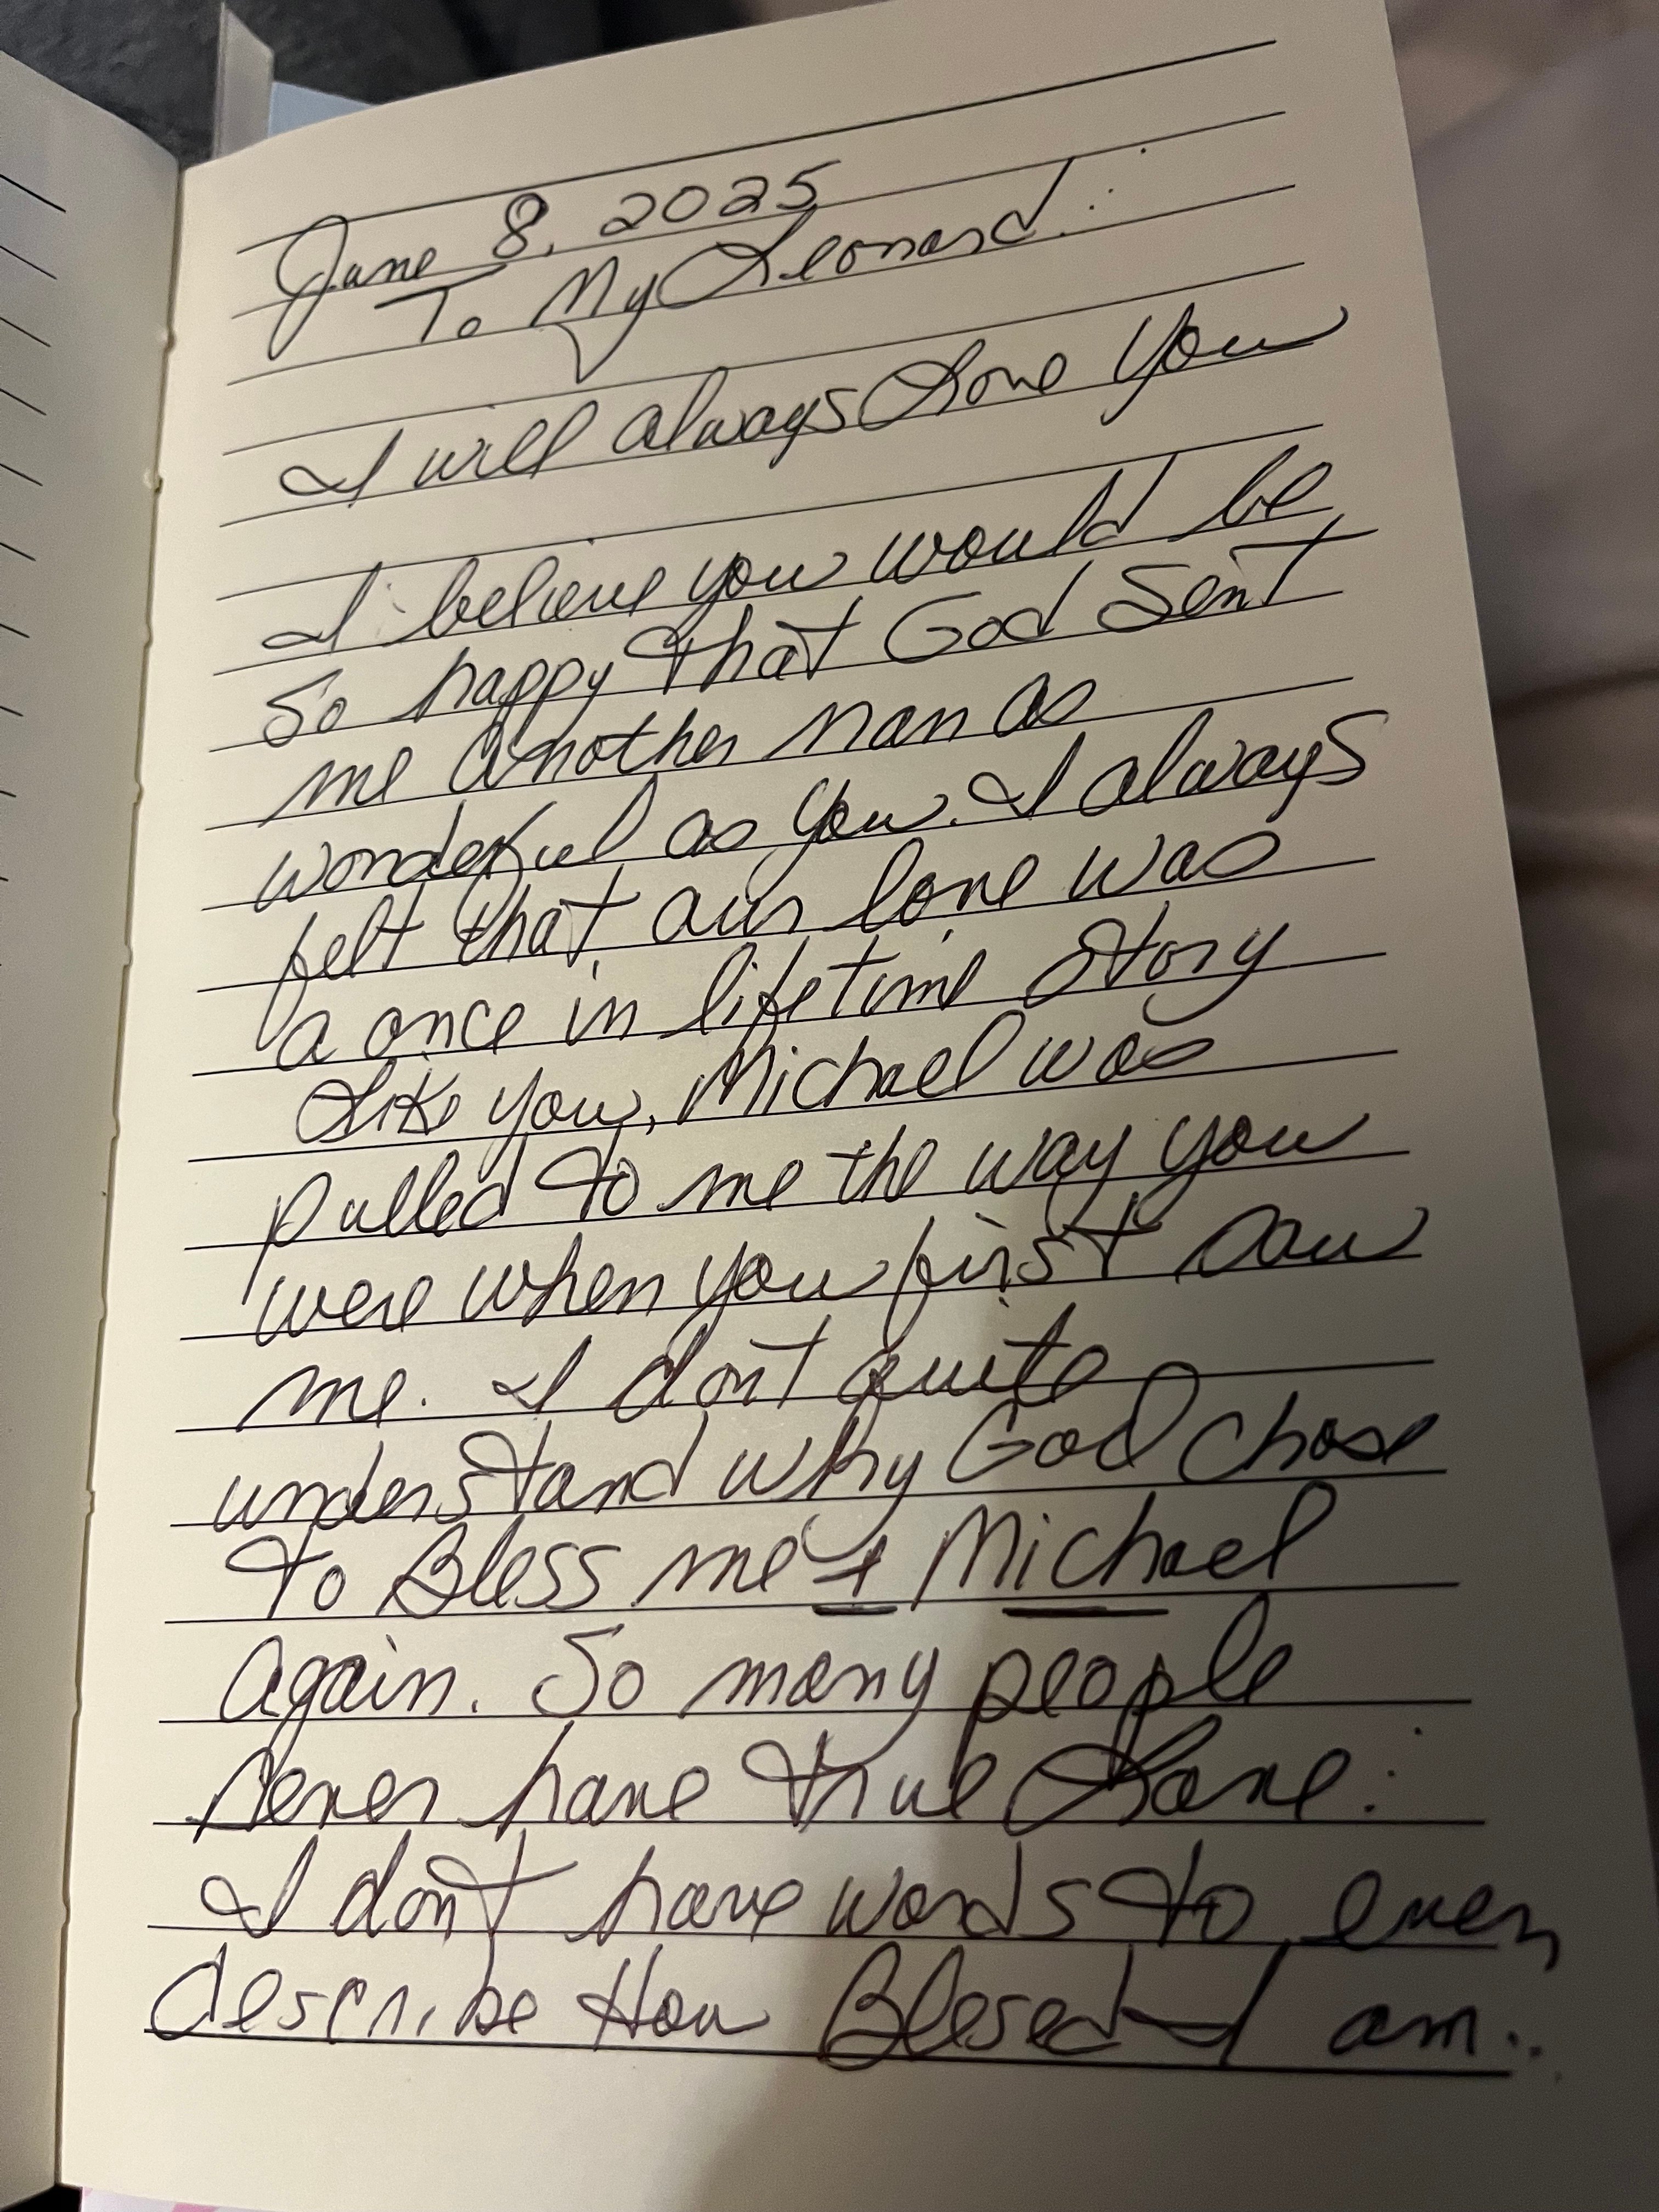 June 8, 2025
To My Leonard:
I will always Love You
I believe you would be
So happy that God Sent
me another man as
wonderful as you. I always
felt that our love was
a once in lifetime Story
Like you, Michael was
pulled to me the way you
were when you first saw
me. I don't quite
understand why God chose
to Bless me + Michael
again. So many people
never have true Love.
I don't have words to even
describe How Blesed I am..